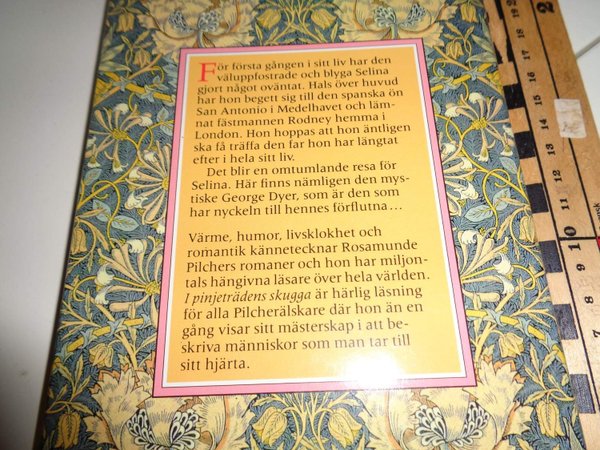 För första gången i sitt liv har den
väluppfostrade och blyga Selina
gjort något oväntat. Hals över huvud
har hon begett sig till den spanska ön
San Antonio i Medelhavet och läm-
nat fästmannen Rodney hemma i
London. Hon hoppas att hon äntligen
ska få träffa den far hon har längtat
efter i hela sitt liv.
Det blir en omtumlande resa för
Selina. Här finns nämligen den mys-
tiske George Dyer, som är den som
har nyckeln till hennes förflutna…
Värme, humor, livsklokhet och
romantik kännetecknar Rosamunde
Pilchers romaner och hon har miljon-
tals hängivna läsare över hela världen.
I pinjeträdens skugga är härlig läsning
för alla Pilcherälskare där hon än en
gång visar sitt mästerskap i att be-
skriva människor som man tar till
sitt hjärta.
2
10